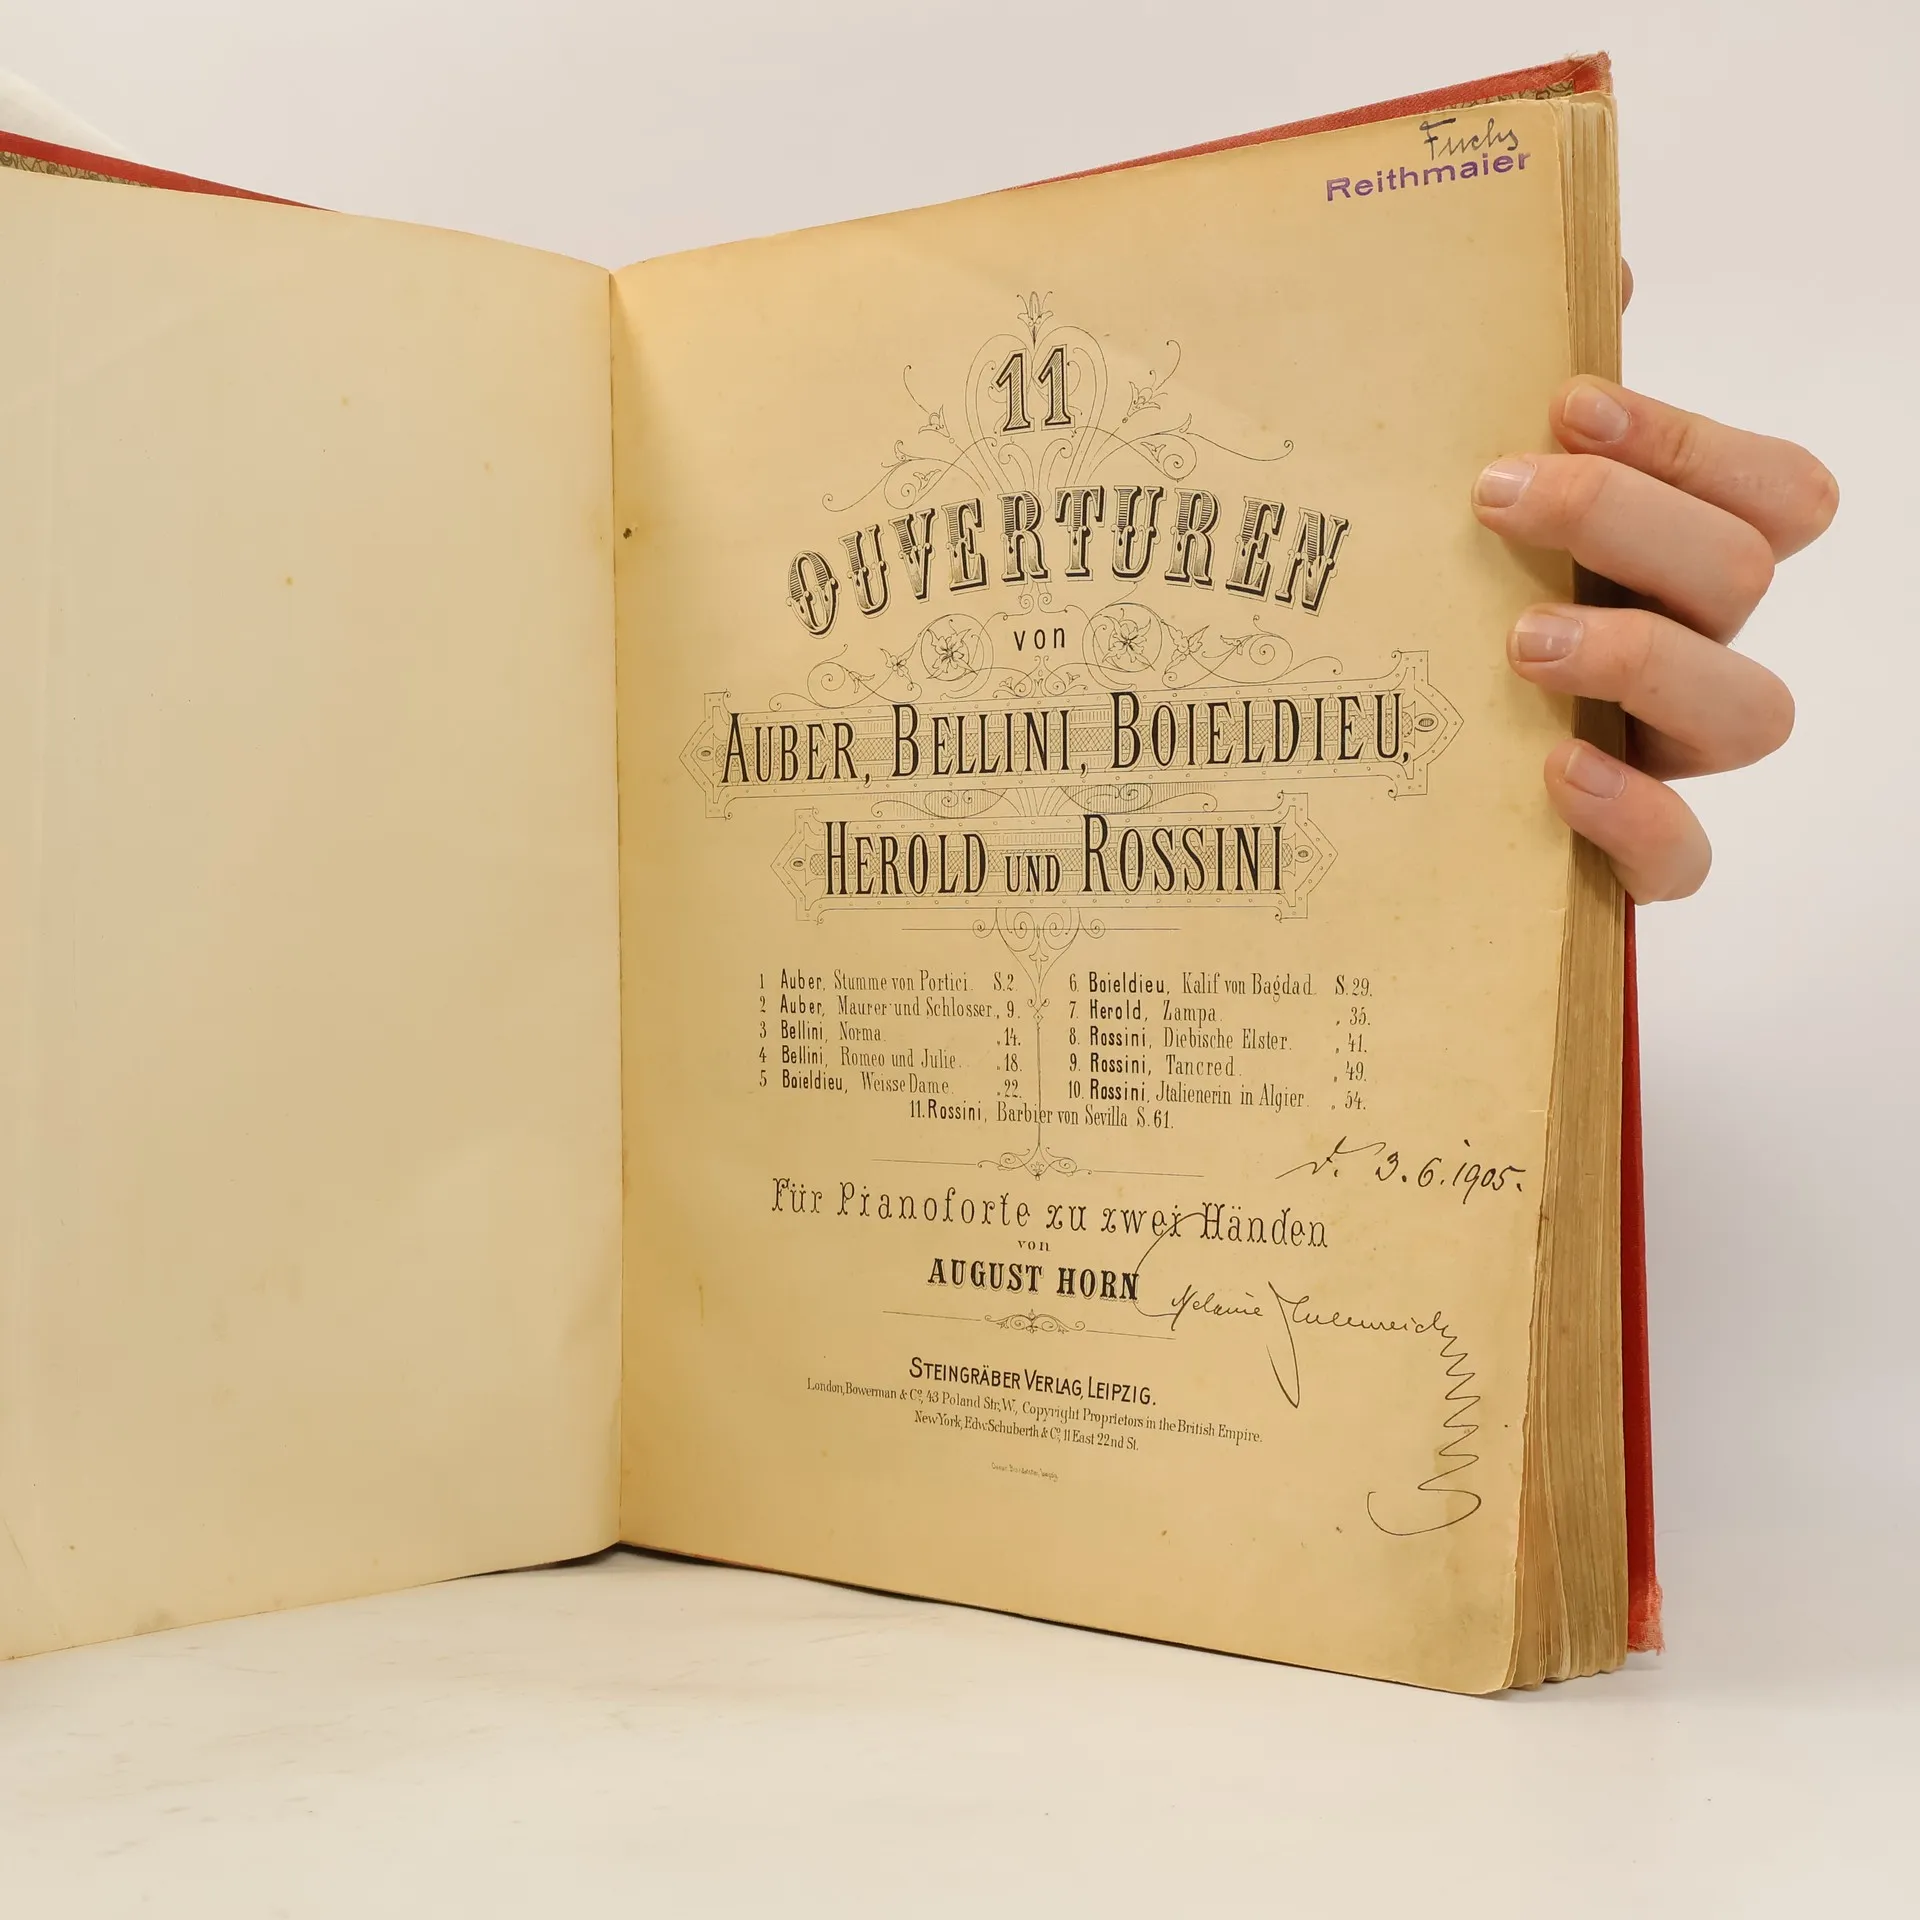 Fuchs
Reithmaier
11
OUVERTUREN
von
AUBER, BELLINI, BOIELDIEU,
HEROLD UND ROSSINI
1 Auber, Stumme von Portici. S. 2.
2 Auber, Maurer und Schlosser. „ 9.
3 Bellini, Norma. „ 14.
4 Bellini, Romeo und Julie. „ 18.
5 Boieldieu, Weisse Dame. „ 22.
6. Boieldieu, Kalif von Bagdad. S. 29.
7. Herold, Zampa. „ 35.
8. Rossini, Diebische Elster. „ 41.
9. Rossini, Tancred. „ 49.
10. Rossini, Jtalienerin in Algier. „ 54.
11. Rossini, Barbier von Sevilla S. 61.
3. 6. 1905.
Für Pianoforte zu zwei Händen
von
AUGUST HORN
Melanie
STEINGRÄBER VERLAG, LEIPZIG.
London, Bowerman & Co, 43 Poland Str, W., Copyright Proprietors in the British Empire.
New York, Edw. Schuberth & Co, 11 East 22nd St.